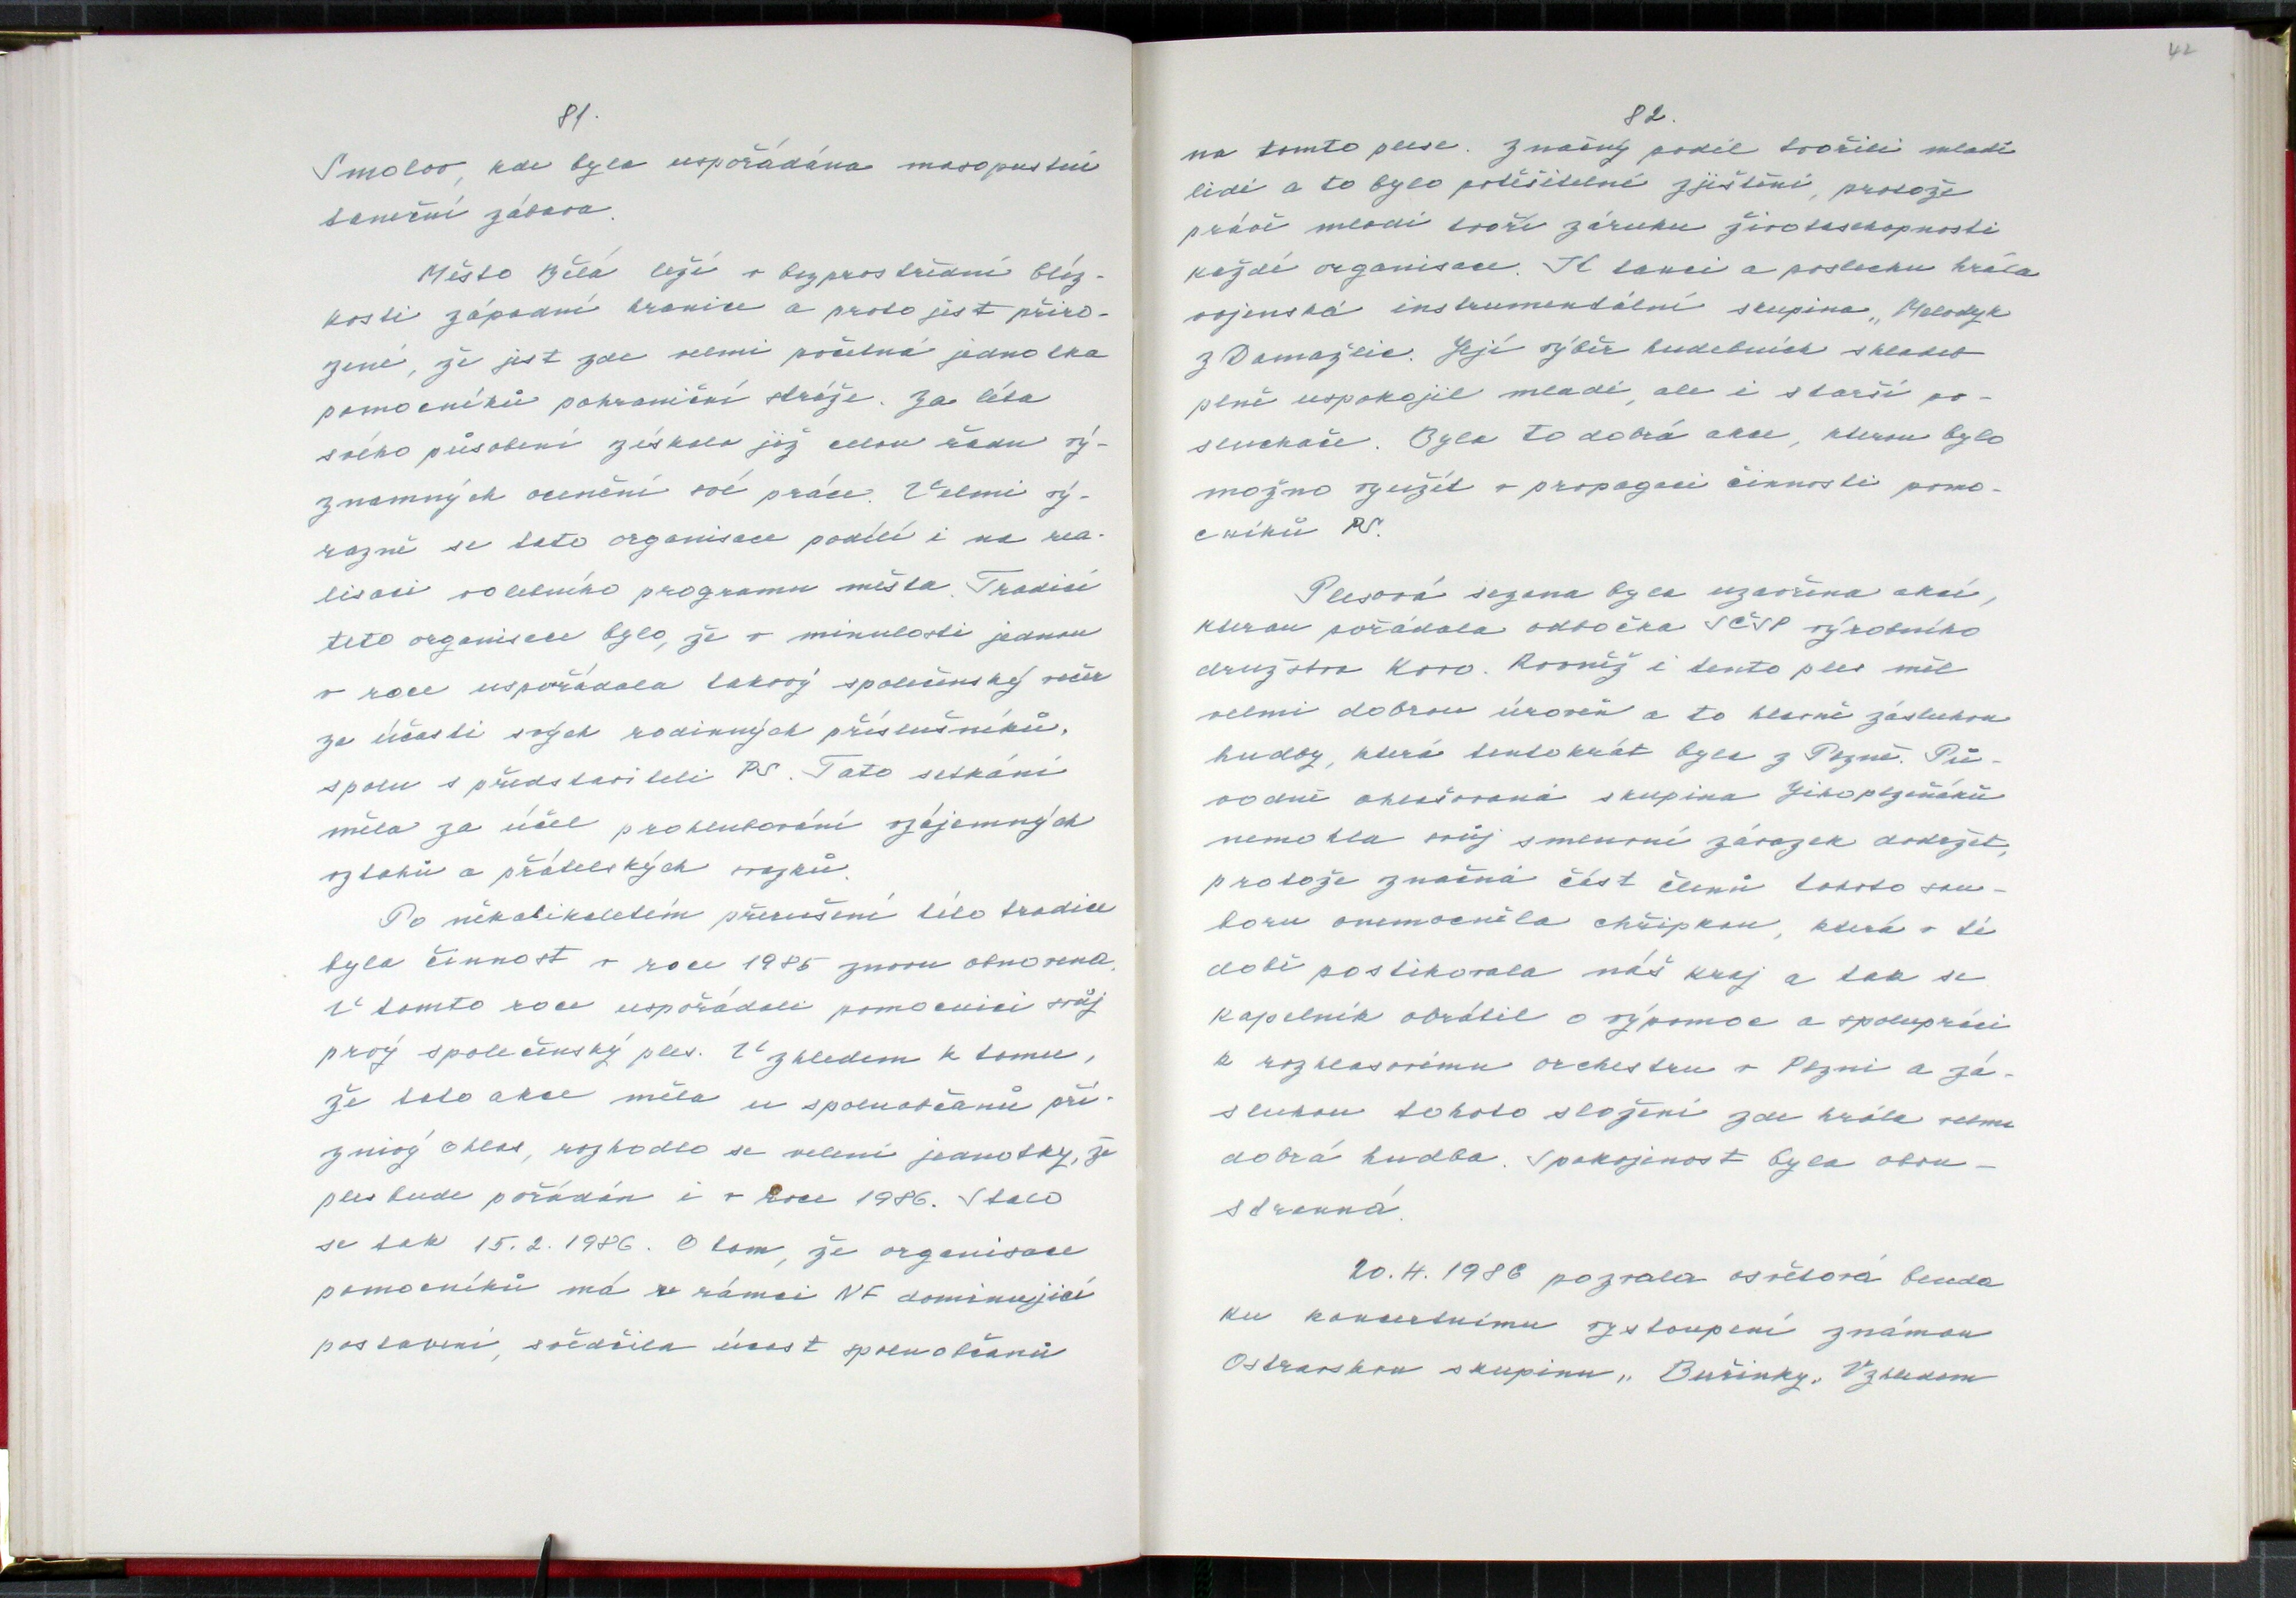 81.
Smolov, kde byla uspořádána masopustní
taneční zábava.
Město Bělá leží v bezprostřední blíz-
kosti západní hranice a proto jest přiro-
zené, že jest zde velmi početná jednotka
pomocníků pohraniční stráže. Za léta
svého působení získala již celou řadu vý-
znamných ocenění své práce. Velmi vý-
razně se tato organisace podílí i na rea-
lisaci volebního programu města. Tradicí
této organisace bylo, že v minulosti jednou
v roce uspořádala takový společenský večer
za účasti svých rodinných příslušníků,
spolu s představiteli PS. Tato setkání
měla za účel prohlubování vzájemných
vztahů a přátelských svazků.
Po několikaletém přerušení této tradice
byla činnost v roce 1985 znovu obnovena.
V tomto roce uspořádali pomocníci svůj
prvý společenský ples. Vzhledem k tomu,
že tato akce měla u spoluobčanů pří-
znivý ohlas, rozhodlo se velení jednotky, že
ples bude pořádán i v roce 1986. Stalo
se tak 15.2.1986. O tom, že organisace
pomocníků má v rámci NF dominující
postavení, svědčila účast spoluobčanů
42
82.
na tomto plese. Značný podíl tvořili mladí
lidé a to bylo potěšitelné zjištění, protože
právě mladí tvoří záruku životaschopnosti
každé organisace. K tanci a poslechu hrála
vojenská instrumentální skupina „Melodyk
z Domažlic. Její výběr hudebních skladeb
plně uspokojil mladé, ale i starší po-
sluchače. Byla to dobrá akce, kterou bylo
možno využít v propagaci činnosti pomo-
cníků PS.
Plesová sezona byla uzavřena akcí,
kterou pořádala odbočka SČSP výrobního
družstva Kovo. Rovněž i tento ples měl
velmi dobrou úroveň a to hlavně zásluhou
hudby, která tentokrát byla z Plzně. Pů-
vodně ohlašovaná skupina Jihoplzeňáků
nemohla svůj smluvní závazek dodržet,
protože značná část členů tohoto sou-
boru onemocněla chřipkou, která v té
době postihovala náš kraj a tak se
kapelník obrátil o výpomoc a spolupráci
k rozhlasovému orchestru v Plzni a zá-
sluhou tohoto složení zde hrála velmi
dobrá hudba. Spokojenost byla obou-
stranná.
20.4.1986 pozvala osvětová beseda
ku koncertnímu vystoupení známou
Ostravskou skupinu „Buřinky„ Vzhledem